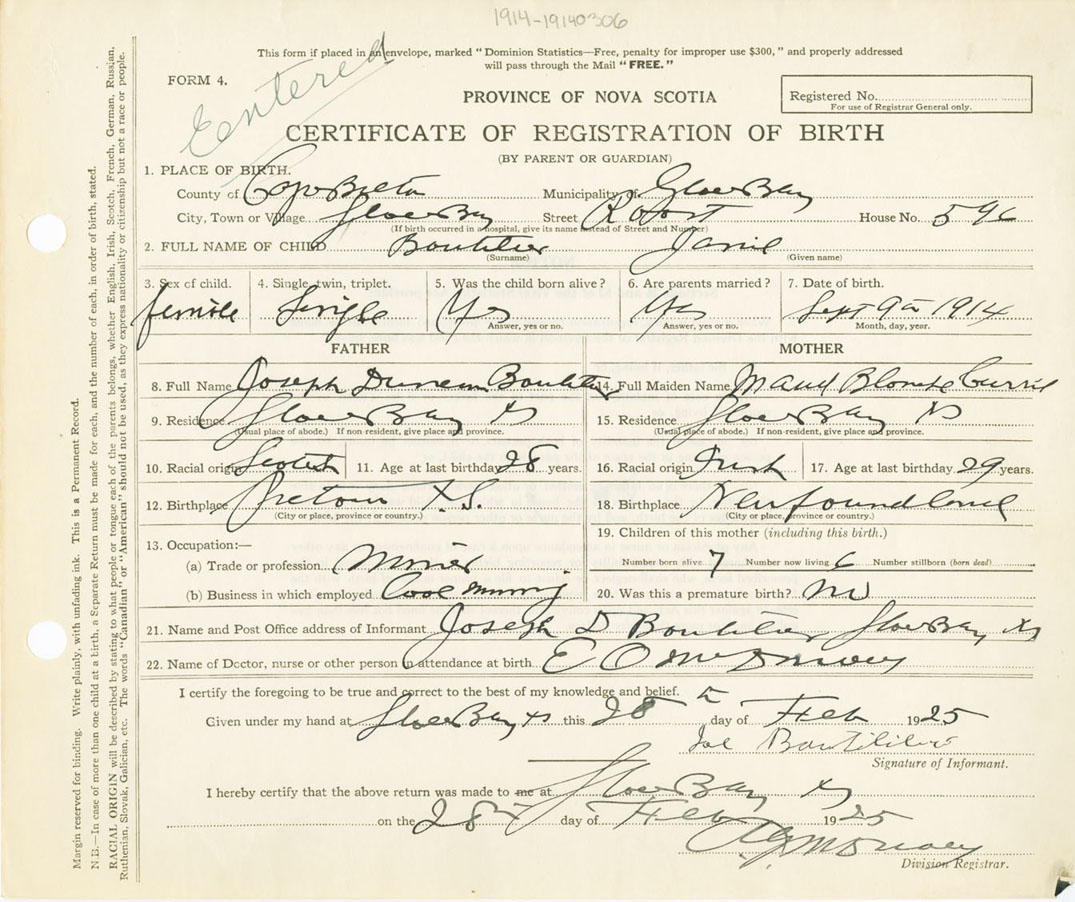 1914-19140306
This form if placed in an envelope, marked "Dominion Statistics—Free, penalty for improper use $300," and properly addressed
will pass through the Mail "FREE."
FORM 4.
Entered
PROVINCE OF NOVA SCOTIA
Registered No.
For use of Registrar General only.
CERTIFICATE OF REGISTRATION OF BIRTH
(BY PARENT OR GUARDIAN)
1. PLACE OF BIRTH.
County of Cape Breton Municipality of Glace Bay
City, Town or Village Glace Bay Street House No. 596
(If birth occurred in a hospital, give its name instead of Street and Number)
2. FULL NAME OF CHILD Boutilier Janie
(Surname) (Given name)
3. Sex of child. 4. Single, twin, triplet. 5. Was the child born alive? 6. Are parents married? 7. Date of birth.
female Single Yes Yes Sept 9th 1914
Answer, yes or no. Answer, yes or no. Month, day, year.
FATHER MOTHER
8. Full Name Joseph Duncan Boutilier 14. Full Maiden Name Maud Blanche Currie
9. Residence Glace Bay NS 15. Residence Glace Bay NS
(Usual place of abode.) If non-resident, give place and province. (Usual place of abode.) If non-resident, give place and province.
10. Racial origin Scotch 11. Age at last birthday 28 years. 16. Racial origin Irish 17. Age at last birthday 29 years.
12. Birthplace N.S. 18. Birthplace Newfoundland
(City or place, province or country.) (City or place, province or country.)
13. Occupation:— 19. Children of this mother (including this birth.)
(a) Trade or profession Miner Number born alive 7 Number now living 6 Number stillborn (born dead)
(b) Business in which employed Coal Mining 20. Was this a premature birth? No
21. Name and Post Office address of Informant Joseph D Boutilier Glace Bay NS
22. Name of Doctor, nurse or other person in attendance at birth E O
I certify the foregoing to be true and correct to the best of my knowledge and belief.
Given under my hand at Glace Bay NS this 28th day of Feb 1925
Joe Boutilier
Signature of Informant.
I hereby certify that the above return was made to me at Glace Bay NS
on the 28th day of Feb 1925
Division Registrar.
Margin reserved for binding. Write plainly, with unfading ink. This is a Permanent Record.
N.B.—In case of more than one child at a birth, a Separate Return must be made for each, and the number of each, in order of birth, stated.
RACIAL ORIGIN will be described by stating to what people or tongue each of the parents belongs, whether English, Irish, Scotch, French, German, Russian,
Ruthenian, Slovak, Galician, etc. The words "Canadian or "American" should not be used, as they express nationality or citizenship but not a race or people.